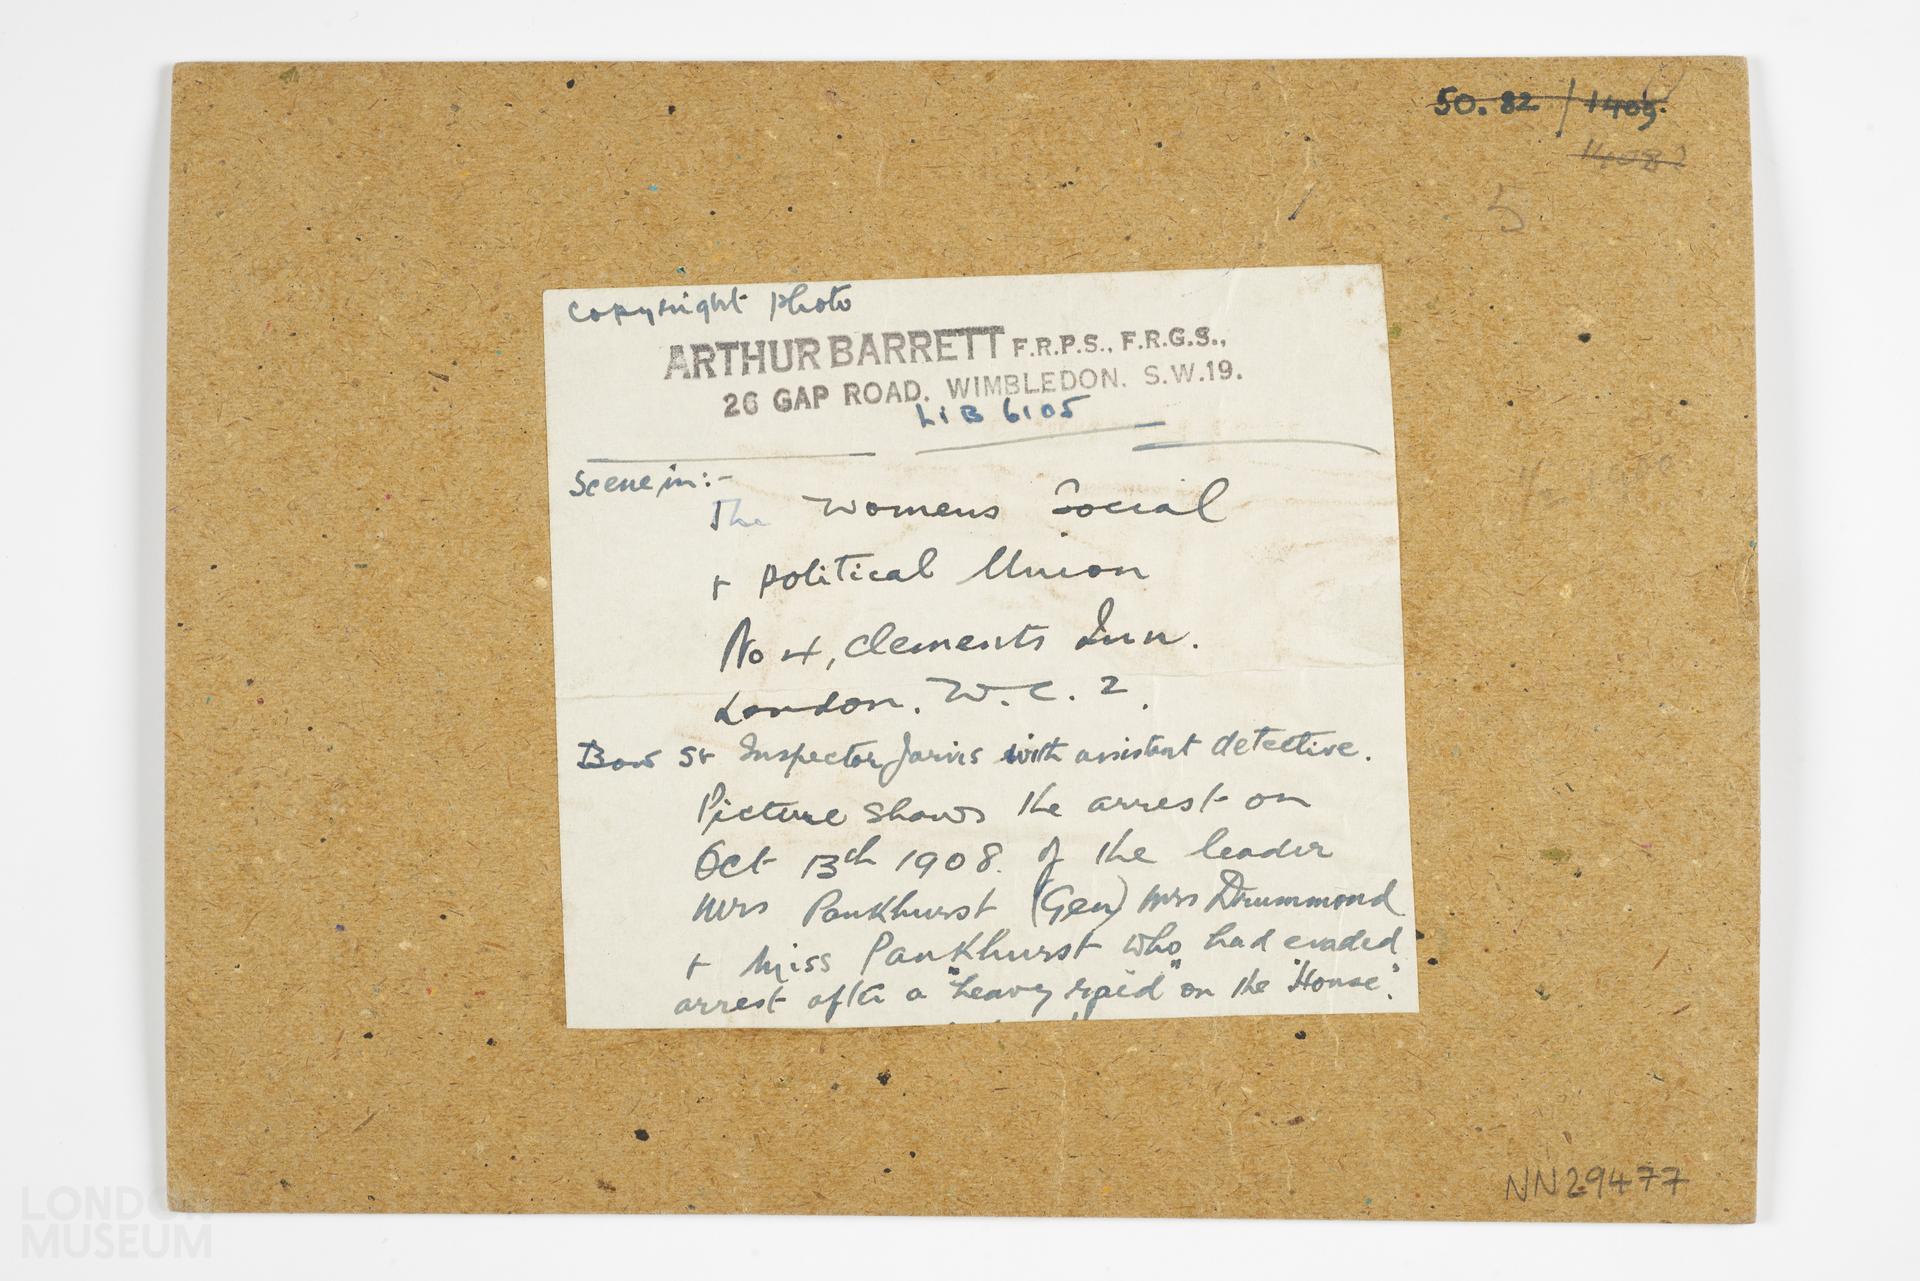 50.82 / 1409.
14082
5
copyright Photo
ARTHUR BARRETT F.R.P.S., F.R.G.S.,
26 GAP ROAD, WIMBLEDON. S.W.19.
LIB 6105
Scene in:-
The Womens Social
+ Political Union
No 4, Clements Inn.
London. W.C.2.
Bow St Inspector Jarvis with assistant detective.
Picture shows the arrest on
Oct 13th 1908. of the leader
Mrs Pankhurst (Gen) Mrs Drummond
+ Miss Pankhurst who had evaded
arrest after a "heavy raid" on the "House".
NN29477
LONDON
MUSEUM